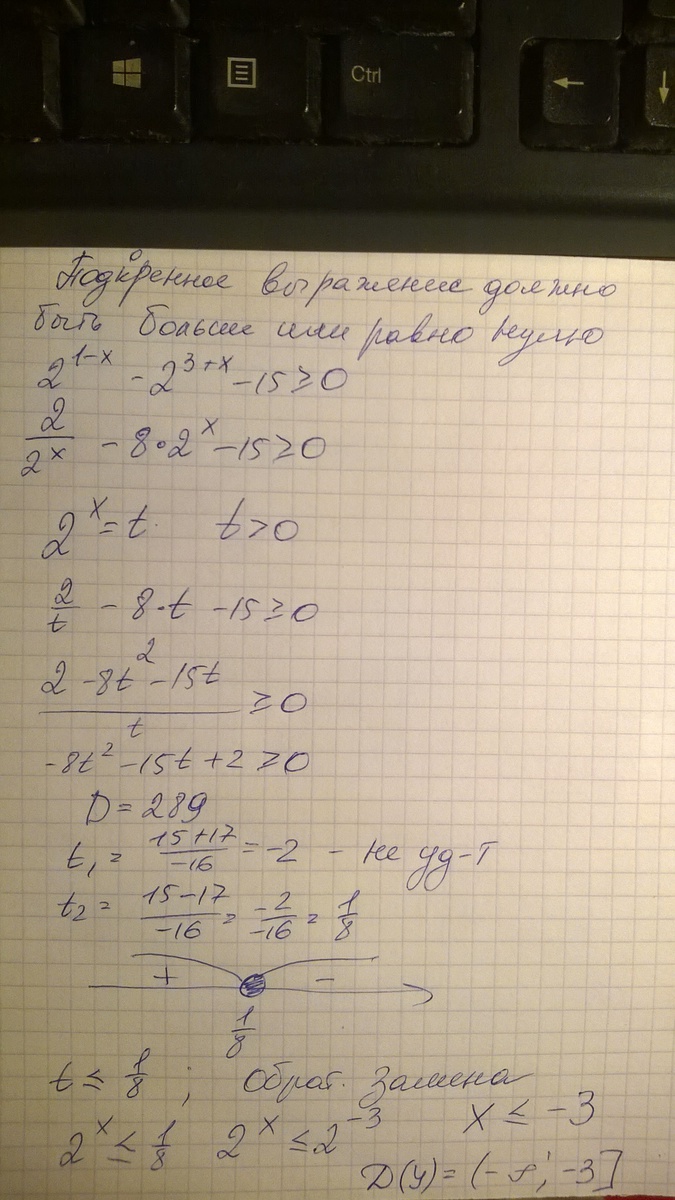 Ctrl
←
↓
Подкоренное выражение должно
быть больше или равно нулю
2^{1-x} - 2^{3+x} - 15 ≥ 0
2/2^x - 8·2^x - 15 ≥ 0
2^x = t. t > 0
2/t - 8·t - 15 ≥ 0
(2 - 8t^2 - 15t)/t ≥ 0
-8t^2 - 15t + 2 ≥ 0
D = 289
t_1 = (15+17)/(-16) = -2 - не уд-т
t_2 = (15-17)/(-16) = (-2)/(-16) = 1/8
+ -
1/8
t ≤ 1/8 ; Обрат. замена
2^x ≤ 1/8 2^x ≤ 2^{-3} x ≤ -3
D(y) = (-∞; -3]